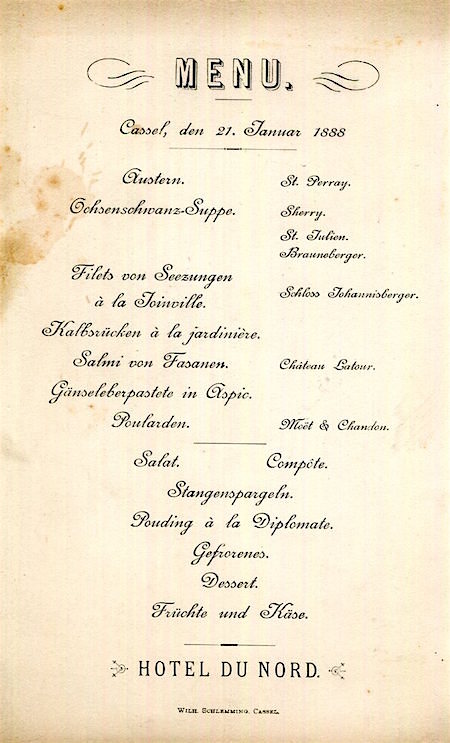 MENU.
Cassel, den 21. Januar 1888
Austern. St. Perray.
Ochsenschwanz-Suppe. Sherry.
St. Julien.
Brauneberger.
Filets von Seezungen
à la Joinville. Schloss Johannisberger.
Kalbsrücken à la jardinière.
Salmi von Fasanen. Château Latour.
Gänseleberpastete in Aspic.
Poularden. Moët & Chandon.
Salat. Compôte.
Stangenspargeln.
Pouding à la Diplomate.
Gefrorenes.
Dessert.
Früchte und Käse.
HOTEL DU NORD.
WILH. SCHLEMMING, CASSEL.